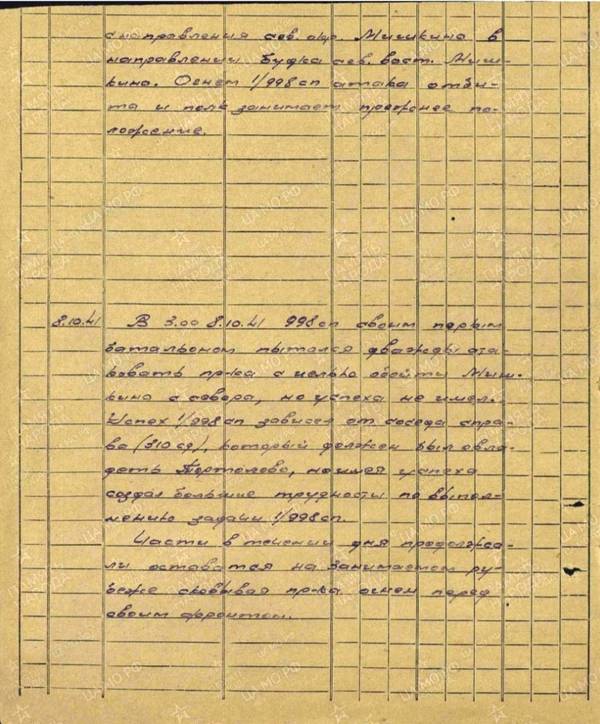 с направления сев. окр. Мишкино в
направлении Будка сев. вост. Миш-
кино. Огнем 1/998 сп атака отби-
та и полк занимает прежнее по-
ложение.
8.10.41 В 3.00 8.10.41 998 сп своим первым
батальоном пытался дважды ата-
ковать пр-ка с целью обойти Миш-
кино с севера, но успеха не имел.
Успех 1/998 сп зависел от соседа спра-
ва (310 сд), который должен был овла-
деть Тортолово, не имея успеха
создал большие трудности по выпол-
нению задачи 1/998 сп.
Части в течении дня продолжа-
ли оставатся на занимаемом ру-
беже сковывая пр-ка огнем перед
своим фронтом.
ПАМЯТЬ НАРОДА
ЦАМО.РФ